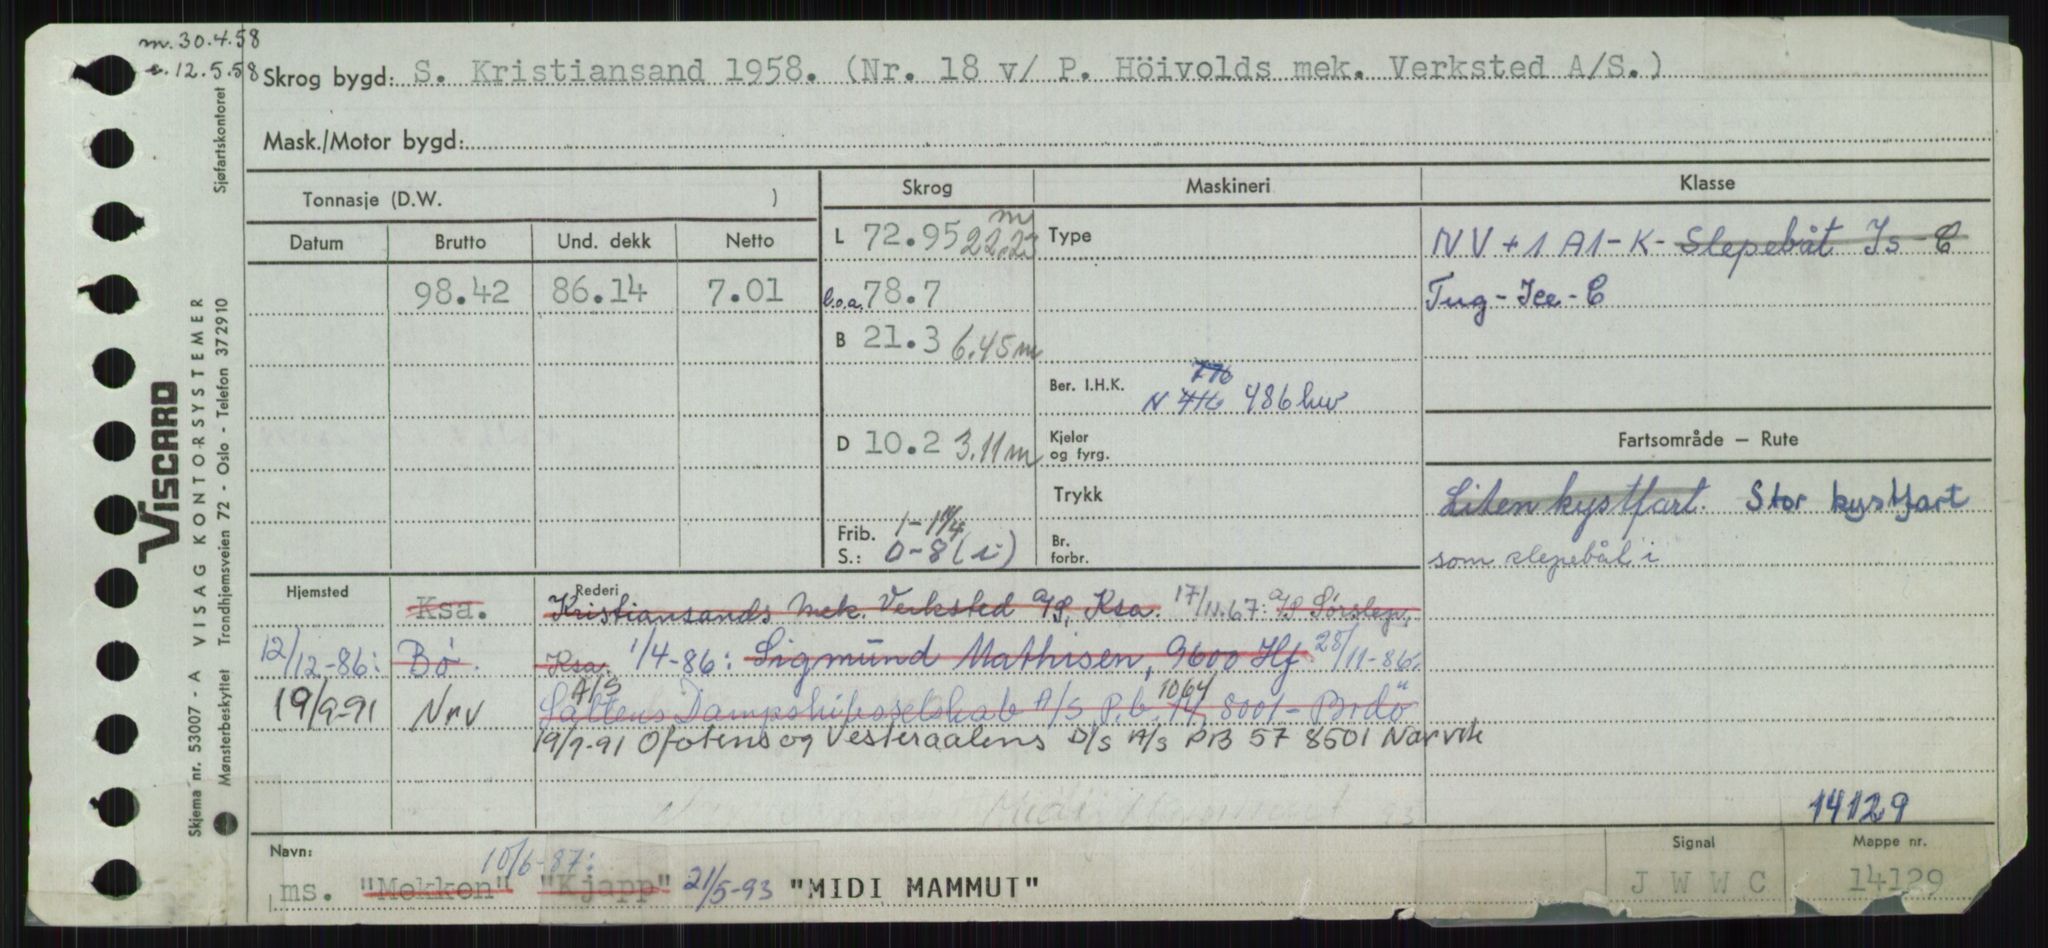 m. 30.4.58
e. 12.5.58
Skrog bygd: S. Kristiansand 1958. (Nr. 18 v/ P. Höivolds mek. Verksted A/S.)
Mask./Motor bygd:
Tonnasje (D.W. )
Skrog
Maskineri
Klasse
Datum Brutto Und. dekk Netto
98.42 86.14 7.01
L 72.95 22.23 m
l.o.a. 78.7
B 21.3 6.45 m
D 10.2 3.11 m
Frib. 1-1 1/4
S.: 0-8 (i)
Type
Ber. I.H.K. 776
N 416 486 hw
Kjeler
og fyrg.
Trykk
Br.
forbr.
NV + 1 A1 - K - Slepebåt Is - C
Tug - Ice - C
Fartsområde – Rute
Liten kystfart. Stor kystfart
som slepebåt i
Hjemsted
Rederi
Ksa. Kristiansands Mek. Verksted A/S, Ksa. 17/11.67: A/S Sørslep,
12/12-86: Bö. Ksa. 1/4-86: Sigmund Mathisen, 9600 Hf. 28/11-86:
A/S 1064
19/9-91 Nrv Saltens Dampskibsselskab A/S, P.b. 14, 8001 - Bodö
19/9-91 Ofotens og Vesteraalens D/S A/S PB 57 8501 Narvik
Midi Mammut 93
14129
Navn:
10/6-87:
ms. "Mekken" "Kjapp" 21/5-93 "MIDI MAMMUT"
Signal
J W W C
Mappe nr.
14129
Sjøfartskontoret
VISCARD
VISAG KONTORSYSTEMER
Trondhjemsveien 72 - Oslo - Telefon 372910
Skjema nr. 53007 - A
Mønsterbeskyttet